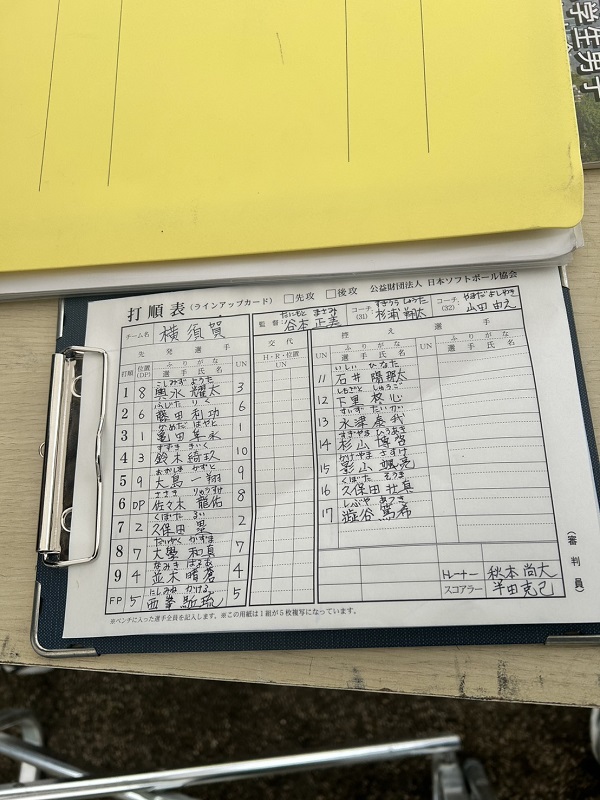 学生男子
打順表 (ラインアップカード) □先攻 □後攻 公益財団法人 日本ソフトボール協会
チーム名 横須賀
監督 たにもと まさみ 谷本 正美
コーチ (31) すぎうら しょうた 杉浦 翔太
コーチ (32) やまだ よしゆき 山田
先発選手 交代 控え選手
打順 位置(DP) ふりがな 選手氏名 UN H・R・位置 UN
UN ふりがな 選手氏名 UN ふりがな 選手氏名
1 8 こしみず ようた 輿水 耀太 3
2 6 ふじた りく 藤田 利功 6
3 1 かめだ はやと 亀田 1
4 3 すずき きいく 鈴木 綺玖 10
5 9 おおしま かずと 大島 一翔 9
6 DP ささき りゅうすけ 佐々木 龍佑 8
7 2 くぼた るい 久保田 塁 2
8 7 かずま 大學 和真 7
9 4 なみき はるま 並木 晴蒼 4
FP 5 にしみね かける 西峯 5
11 いしい ひなた 石井 陽翔太
12 下里 柊心
13 すいず たいが 水津 泰我
14 すぎやま ひろあき 杉山 博啓
15 かげやま さすけ 影山 颯亮
16 くぼた そうま 久保田 壮真
17 しぶや あつき 澁谷 篤希
(審判員)
トレーナー 秋本 尚大
スコアラー 半田 克己
※ベンチに入った選手全員を記入します。※この用紙は1組が5枚複写になっています。